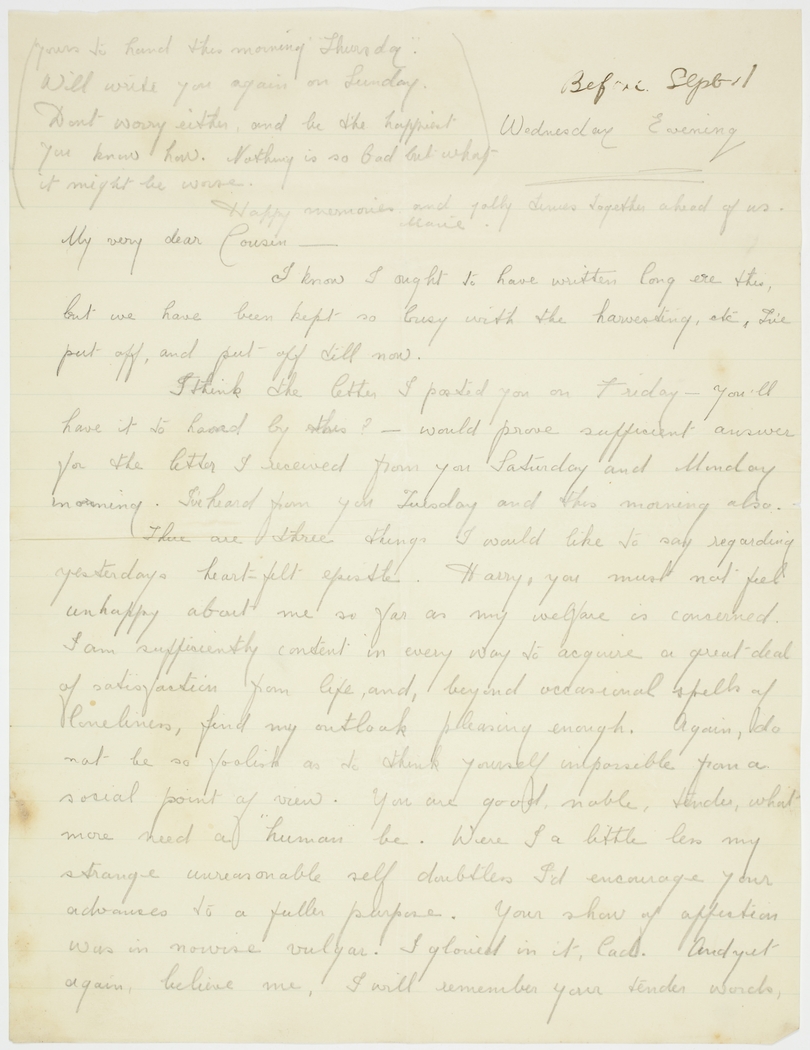 Yours to hand this morning "Thursday".
Will write you again on Sunday.
Dont worry either, and be the happiest
you know how. Nothing is so bad but what
it might be worse.
Happy memories and jolly times together ahead of us.
Marie.
Before Sept 11
Wednesday Evening
My very dear Cousin —
I know I ought to have written long ere this,
but we have been kept so busy with the harvesting, etc, I've
put off, and put off till now.
I think the letter I posted you on Friday — you'll
have it to hand by this? — would prove sufficient answer
for the letter I received from you Saturday and Monday
morning. I've heard from you Tuesday and this morning also.
There are three things I would like to say regarding
yesterdays heart-felt epistle. Harry, you must not feel
unhappy about me so far as my welfare is concerned.
I am sufficiently content in every way to acquire a great deal
of satisfaction from life, and, beyond occasional spells of
loneliness, find my outlook pleasing enough. Again, do
not be so foolish as to think yourself impossible from a
social point of view. You are good, noble, tender, what
more need a "human" be. Were I a little less my
strange unreasonable self doubtless I'd encourage your
advances to a fuller purpose. Your show of affection
was in nowise vulgar. I gloried in it, Lad. And yet
again, believe me, I will remember your tender words,